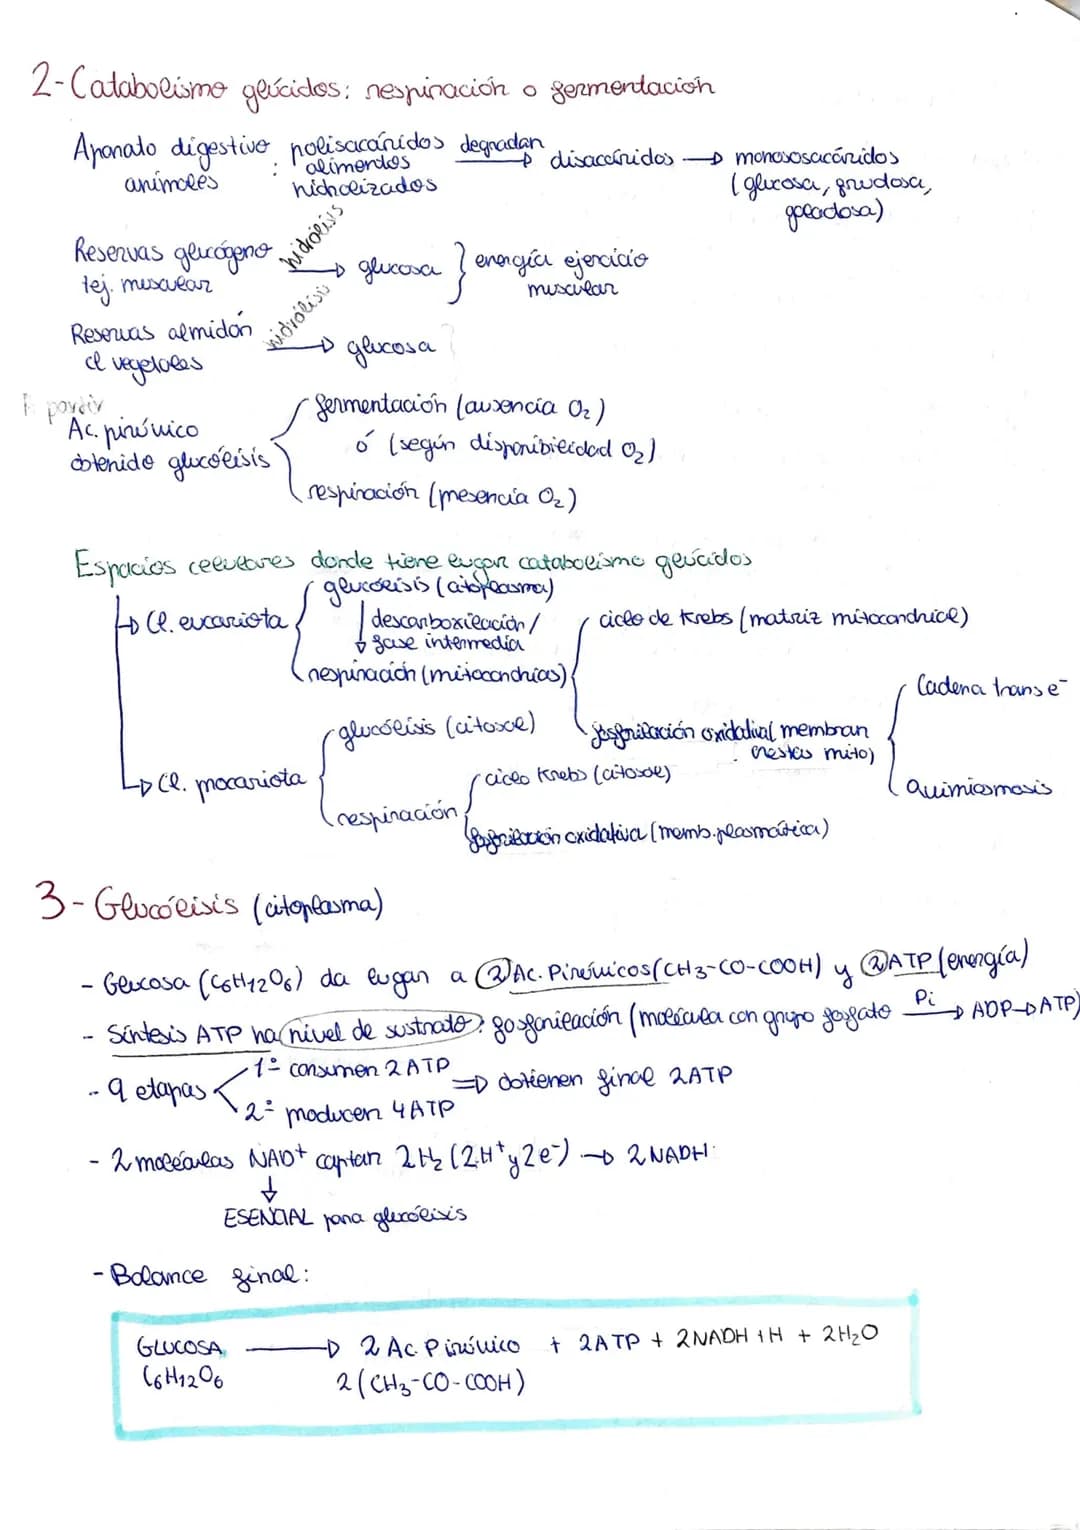 2-Catabolismo glúcidos: respiración o fermentación
Aparato digestivo : polisacáridos degradan → disacáridos → monososacáridos
animales alimentos (glucosa, fructosa,
hidrolizados galactosa)
Reservas glucógeno hidrólisis → glucosa } energía ejercicio
tej. muscular muscular
Reservas almidón hidrólisis → glucosa
cl vegetales
A partir
Ac. pirúvico
obtenido glucólisis
fermentación (ausencia O₂)
ó (según disponibilidad O₂)
respiración (presencia O₂)
Espacios celulares donde tiene lugar catabolismo glúcidos
↳ Cl. eucariota
glucólisis (citoplasma)
↓ descarboxilación/
fase intermedia
respiración (mitocondrias)
ciclo de Krebs (matriz mitocondrial)
fosforilación oxidativa (membran
crestas mito)
Cadena trans e⁻
Quimiosmosis
↳ Cl. procariota
glucólisis (citosol)
respiración
ciclo Krebs (citosol)
fosforilación oxidativa (memb. plasmática)
3- Glucólisis (citoplasma)
- Glucosa (C6H12O6) da lugar a ② Ac. Pirúvicos (CH3-CO-COOH) y ② ATP (energía)
- Síntesis ATP na nivel de sustrato: fosforilación (molécula con grupo fosfato Pi → ADP→ATP)
- 9 etapas
1º consumen 2 ATP
2º producen 4 ATP
⇒ obtienen final 2ATP
- 2 moléculas NAD+ captan 2H₂ (2H⁺ y 2e⁻) → 2 NADH
↓
ESENCIAL para glucólisis
- Balance final:
GLUCOSA → 2 Ac. Pirúvico + 2ATP + 2NADH + H + 2H₂O
C6H12O6 2(CH3-CO-COOH)